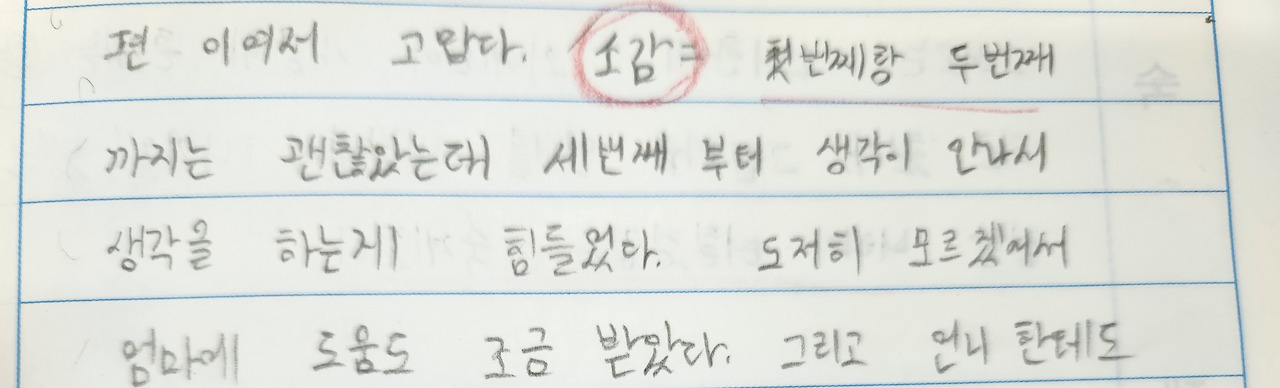 편 이여서 고맙다. 소감= 첫번째랑 두번째
까지는 괜찮았는데 세번째 부터 생각이 안나서
생각을 하는게 힘들었다. 도저히 모르겠어서
엄마에 도움도 조금 받았다. 그리고 언니 한테도